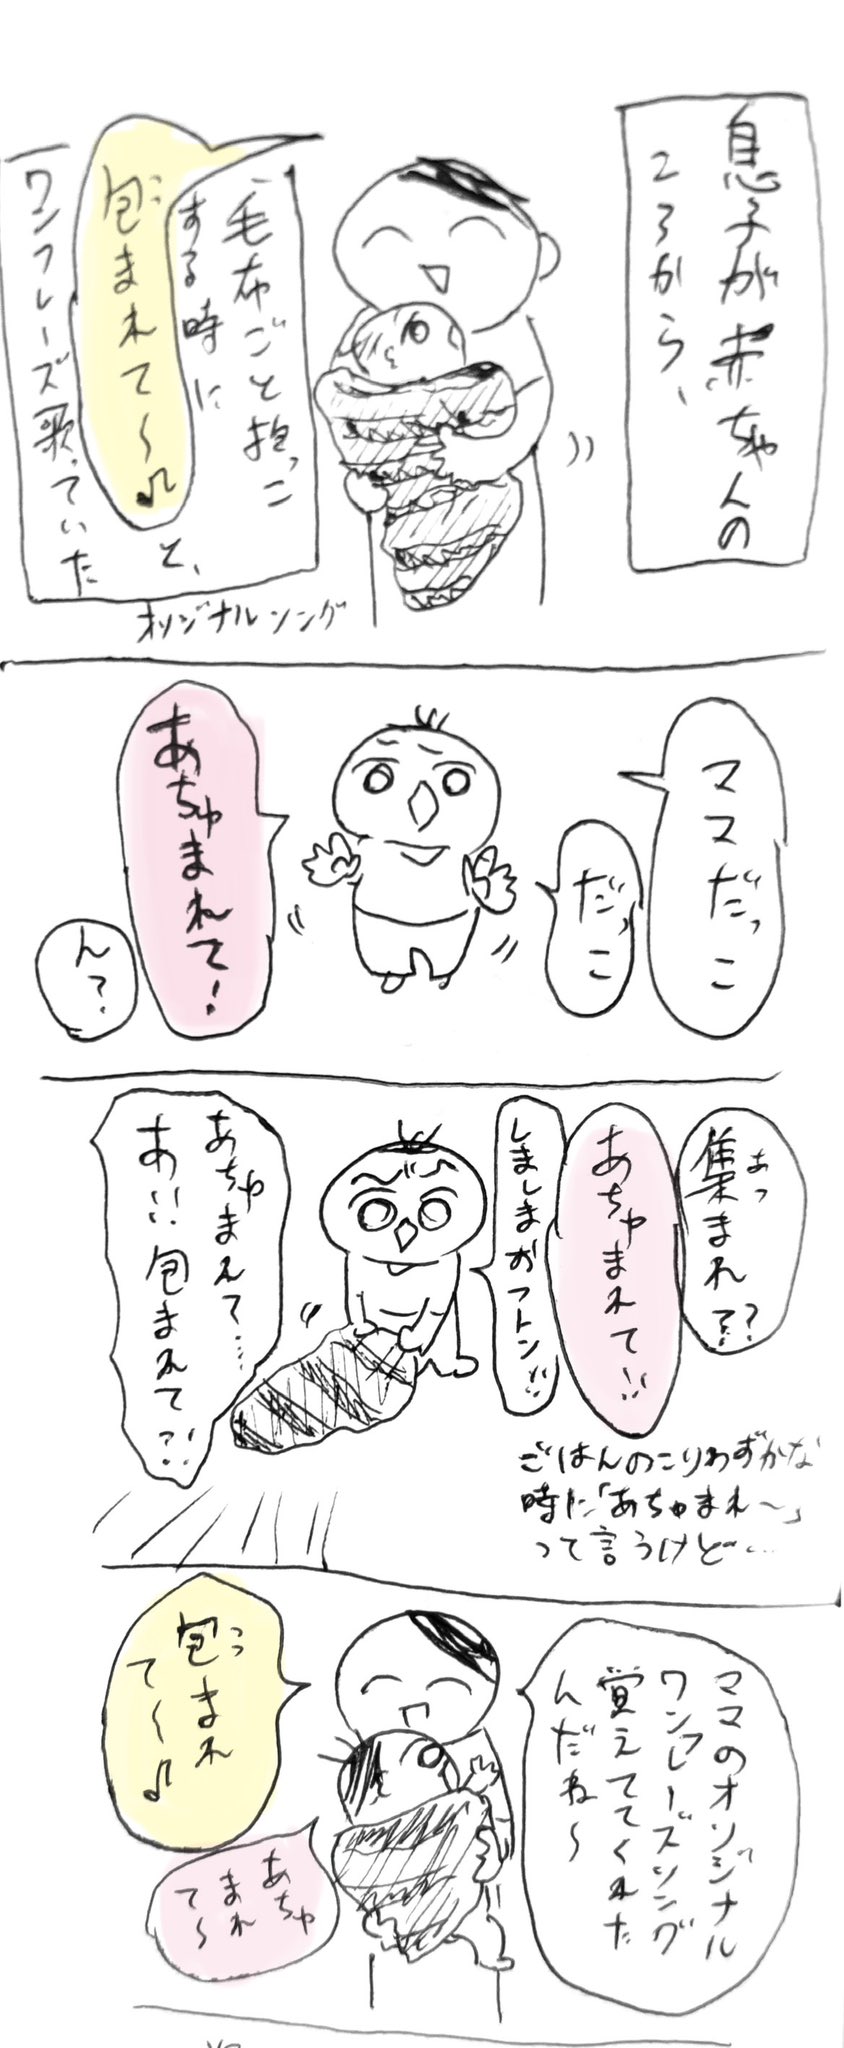 息子が赤ちゃんの
ころから、
毛布ごと抱っこ
する時に
包まれて〜♪
と、
ワンフレーズ歌っていた
オリジナルソング
ママだっこ
だっこ
あちゅまれて!
ん?
集まれ??
あちゅまれて!!
しましまおフトン!!
ごはんのこりわずかな
時に「あちゅまれ〜」
って言うけど…
あちゅまれて……
あ!!包まれて?!
ママのオリジナル
ワンフレーズソング
覚えててくれた
んだね〜
包まれ
て〜♪
あちゅ
まれ
て〜